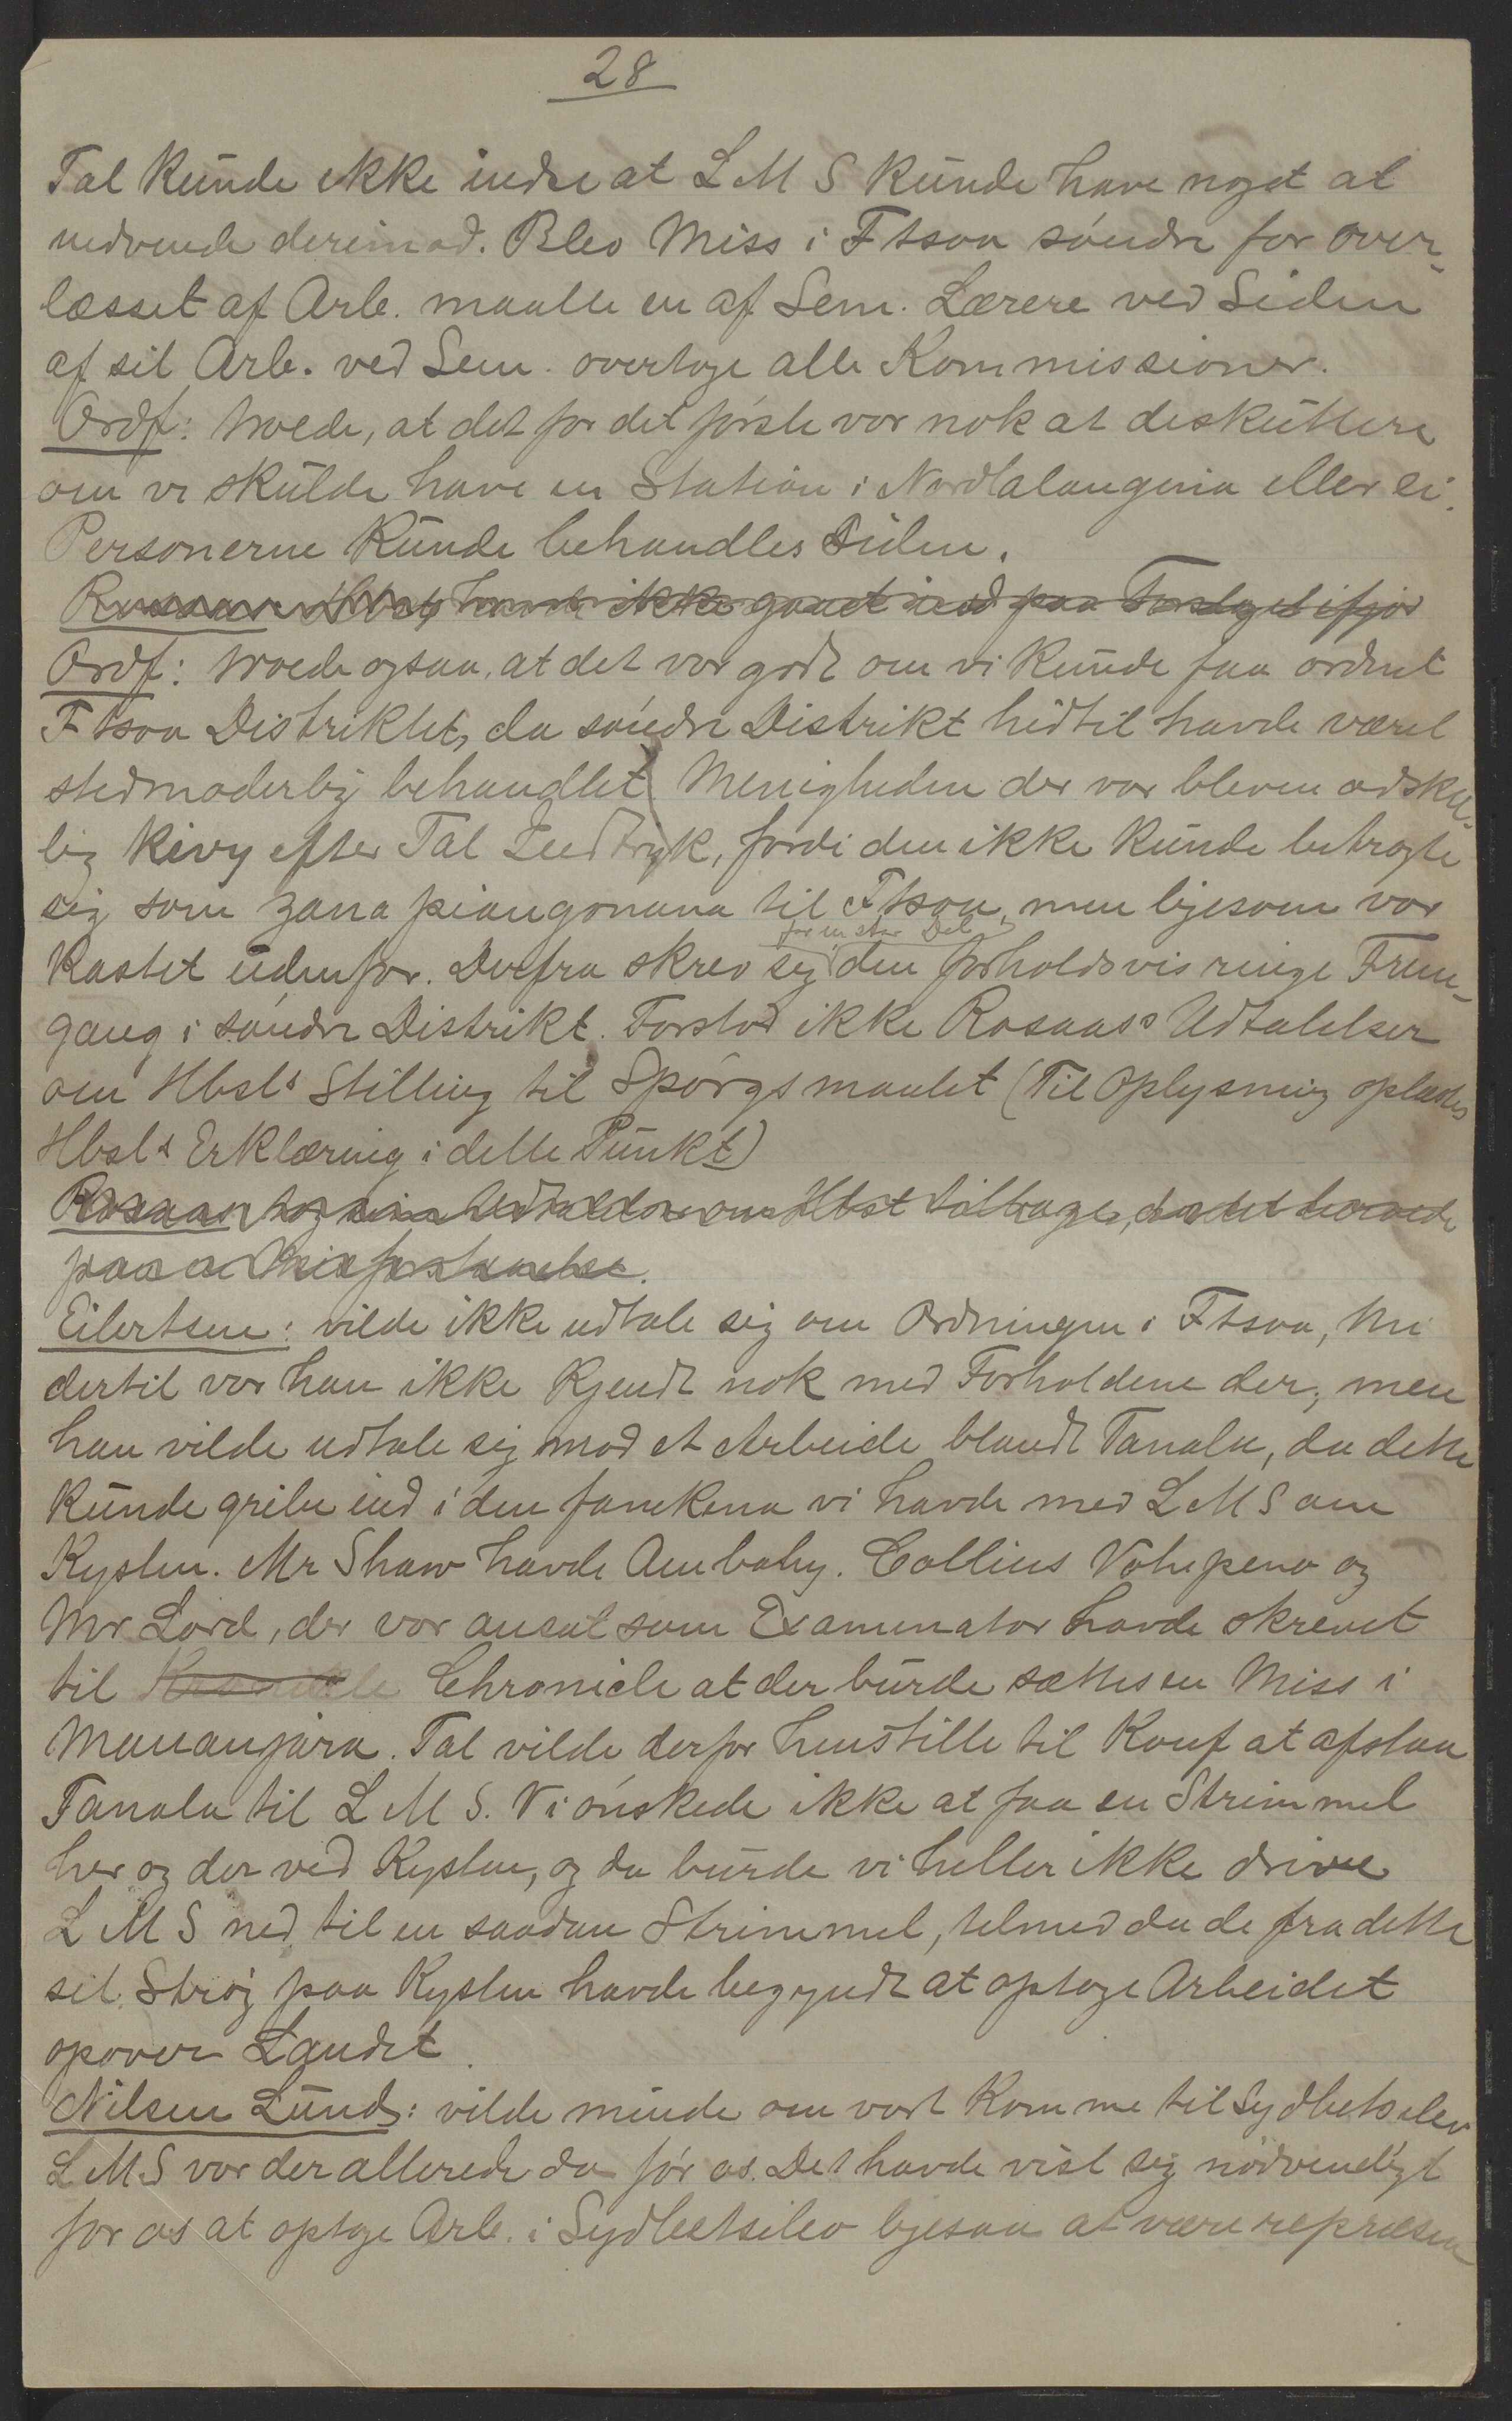 28
Tal kunde ikke indse at L M S kunde have noget at
indvende derimod. Blev Miss i Ftsoa søndre for over-
læsset af Arb. maatte en af Sem. Lærere ved Siden
af sit Arb. ved Sem. overtage alle Kommissioner.
Ordf: troede, at det for det første var nok at diskuttere
om vi skulde have en Station i Nordtalangina eller ei.
Personerne kunde behandles siden.
Rosaas: Hbst havde ikke gaaet ind paa Forslaget ifjor
Ordf: troede ogsaa, at det var godt om vi kunde faa ordnet
Ftsoa Distriktet, da søndre Distrikt hidtil havde været
stedmoderlig behandlet. Menigheden der var bleven adskil-
lig kivy efter Tal Indtryk, fordi den ikke kunde betragte
sig som zana piangonana til Ftsoa, men ligesom var
for en stor Del
kastet udenfor. Derfra skrev sig den forholdsvis ringe Frem-
gang i søndre Distrikt. Forstod ikke Rosaas's Udtalelser
om Hbsts Stilling til Spørgsmaalet (Til Oplysning oplæstes
Hbsts Erklæring i dette Punkt)
Rosaas tog sin Udtalelse om Hbst tilbage, da det beroede
paa en Misforstaaelse.
Eilertsen: vilde ikke udtale sig om Ordningen i Ftsoa,
dertil var han ikke kjendt nok med Forholdene der; men
han vilde udtale sig mod et Arbeide blandt Tanala, da dette
kunde gribe ind i den fanekena vi havde med L M S om
Kysten. Mr Shaw havde Ambohy. Collins Vohipeno og
Mr Lord, der var ansat som Examinator havde skrevet
til Kronikle Chronicle at der burde sættes en Miss i
Mananjara. Tal vilde derfor henstille til Konf at afstaa
Tanala til L M S. Vi ønskede ikke at faa en Strimmel
her og der ved Kysten, og da burde vi heller ikke drive
L M S ned til en saadan Strimmel, telmed da de fra dette
sit Strøg paa Kysten havde begyndt at optage Arbeidet
opover Landet.
Nilsen Lund: vilde minde om vort Komme til Sydbetsileo
L M S var der allerede da før os. Det havde vist sig nødvendigt
for os at optage Arb. i Sydbetsileo ligesaa at være repræsen